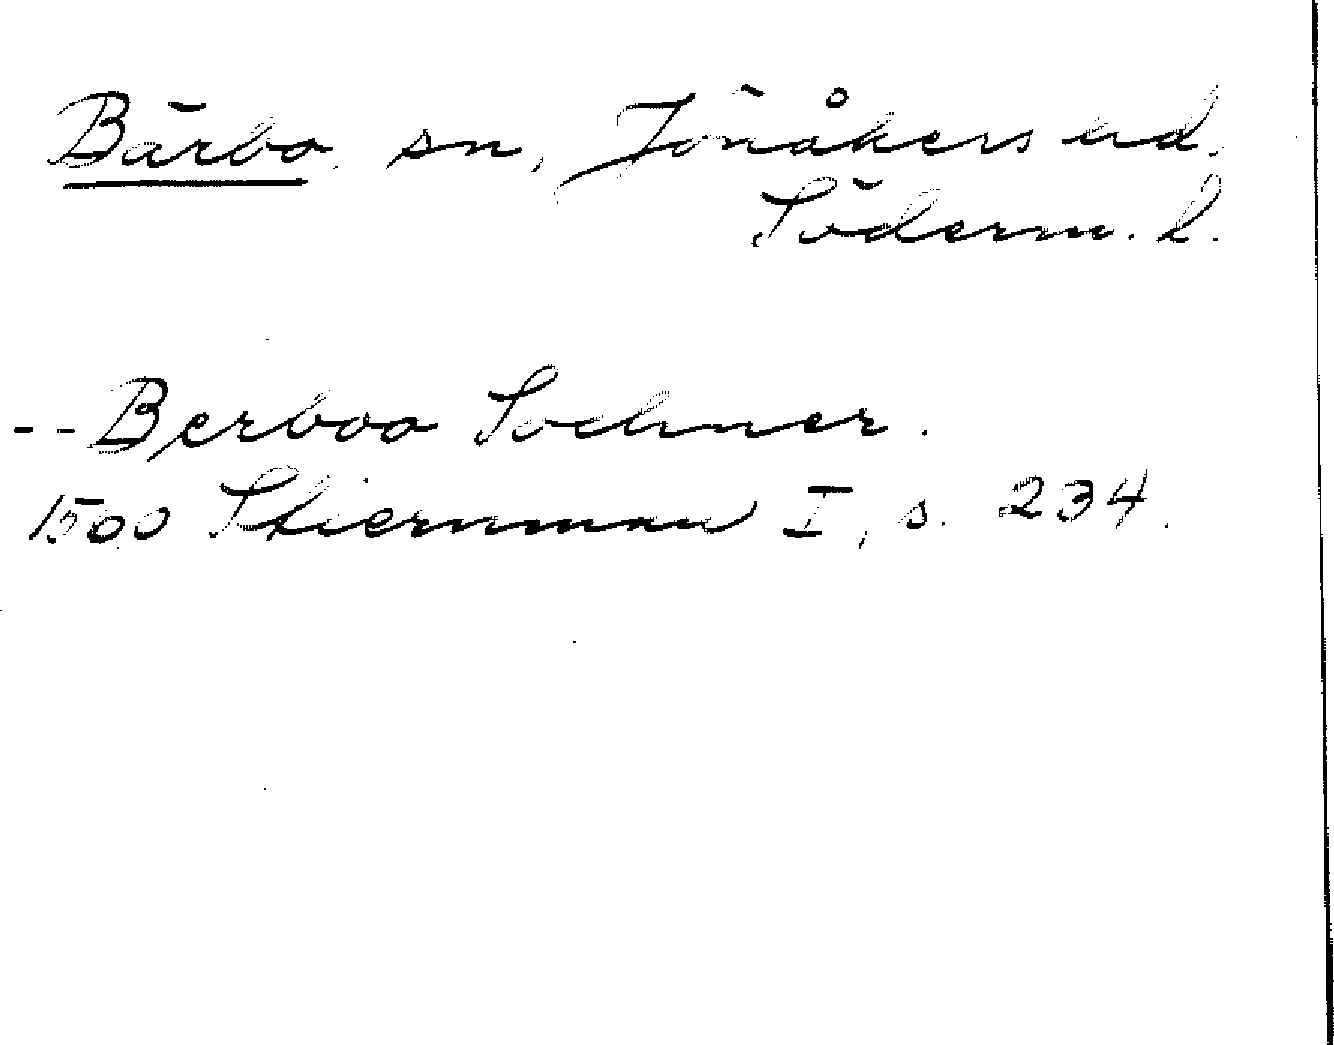 Bärbo sn, Jönåkers hd,
Söderm. l.
-- Berboo Sochner.
1500 Stiernman I, s. 234.